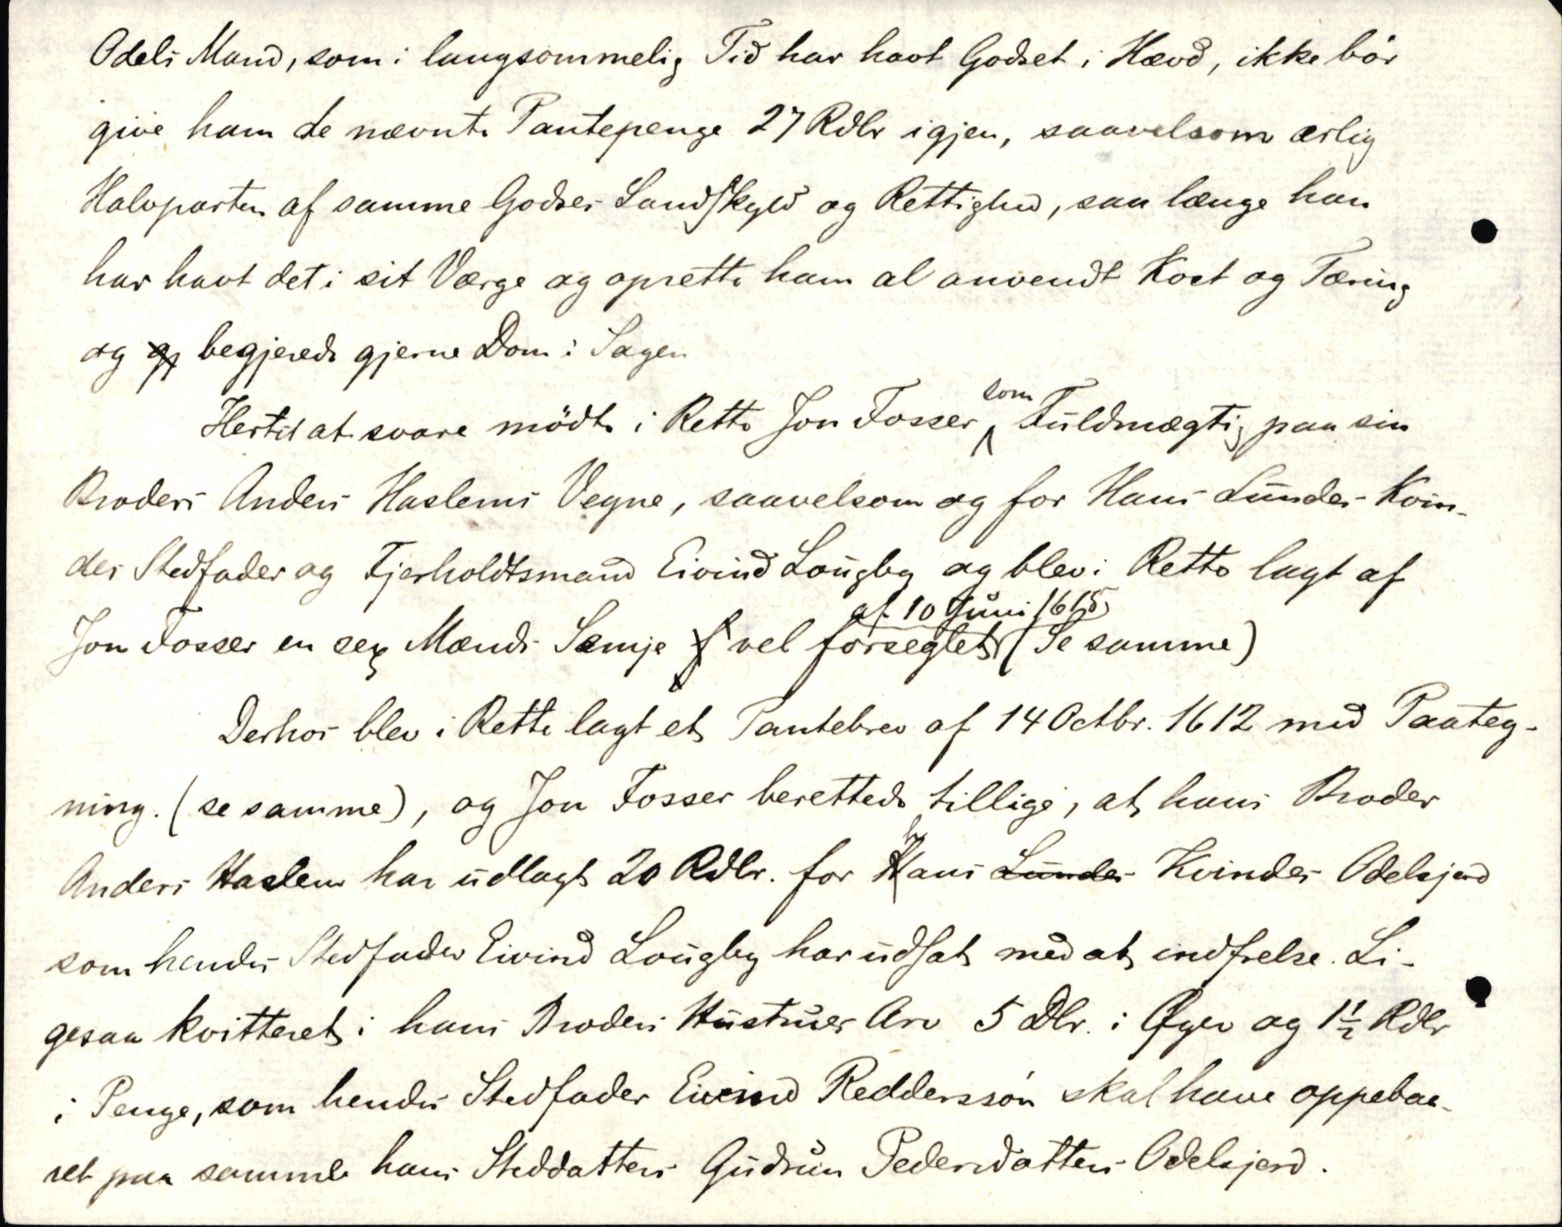 Odels Mand, som i langsommelig Tid har havt Godset i Hævd, ikke bør
give ham de nævnte Pantepenge 27 Rdlr igjen, saavelsom ærlig
Halvparten af samme Godses Landskyld og Rettighed, saa længe han
har havt det i sit Værge og oprette ham al anvendt Kost og Tæring
og begjerede gjerne Dom i Sagen
Hertil at svare mödte i Rette Jon Fosser som Fuldmægtig paa sin
Broders Anders Haslems Vegne, saavelsom og for Hans Lundes Kvin-
des Stedfader og Fjerholdtsmand Eivind Lougby og blev i Rette lagt af
Jon Fosser en sex Mænds Semje vel forseglet af 10 Juni 1615 (Se samme)
Derhos blev i Rette lagt et Pantebrev af 14 Octbr. 1612 med Paateg-
ning. (se samme), og Jon Fosser berettede tillige, at hans Broder
Anders Haslem har udlagt 20 Rdlr. for hans Lundes Kvindes Odelsjord
som hendes Stedfader Eivind Lougby har udsat med at indfrelse. Li-
gesaa kvitteret i hans Broders Hustrues Arv 5 Dlr. i Øyer og 1 1/2 Rdlr
i Penge, som hendes Stedfader Eivind Redderssøn skal have oppebaa-
ret paa samme hans Steddatters Gudrun Pedersdatters Odelsjord.